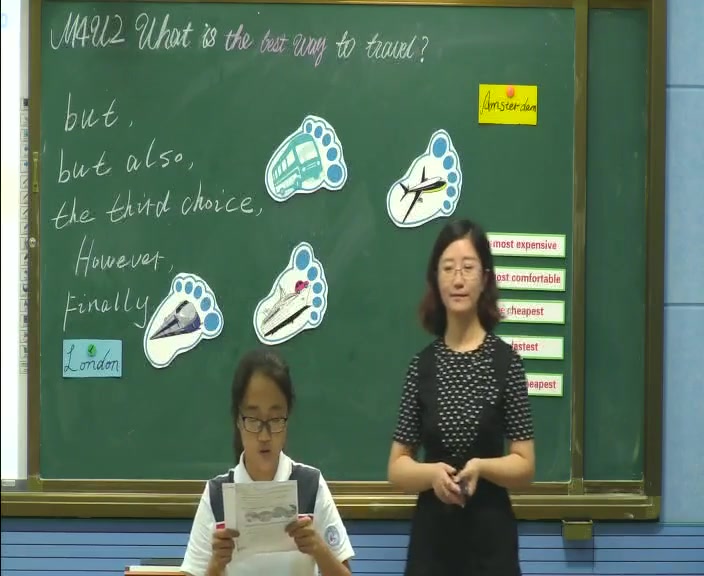 M4U2 What is the best way to travel?
Amsterdam
but,
but also,
the third choice,
However,
Finally
London
most expensive
most comfortable
cheapest
fastest
cheapest